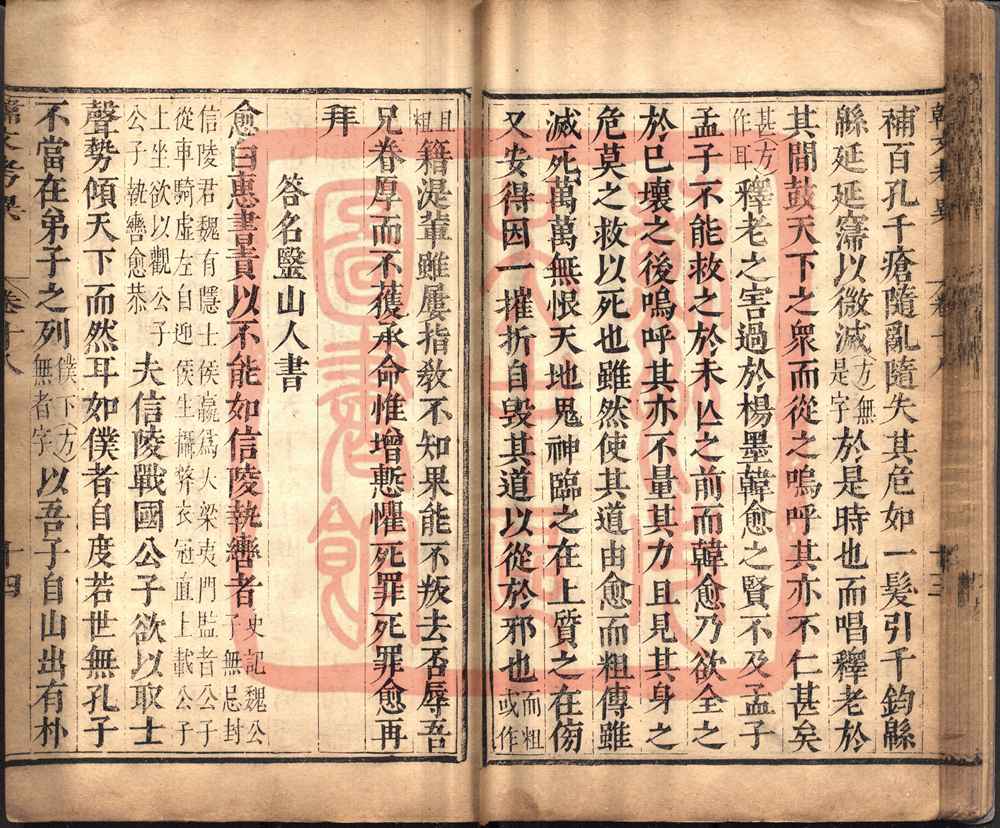 補百孔千瘡隨亂隨失其危如一髮引千鈞緜
緜延延寖以微滅方無是字於是時也而唱釋老於
其間鼓天下之衆而從之嗚呼其亦不仁甚矣
甚方作耳釋老之害過於楊墨韓愈之賢不及孟子
孟子不能救之於未亾之前而韓愈乃欲全之
於已壞之後嗚呼其亦不量其力且見其身之
危莫之救以死也雖然使其道由愈而粗傳雖
滅死萬萬無恨天地鬼神臨之在上質之在傍
又安得因一摧折自毀其道以從於邪也而粗或作
且粗籍湜輩雖屢指敎不知果能不叛去否辱吾
兄眷厚而不獲承命惟增慙懼死罪死罪愈再
拜
答呂毉山人書
愈白惠書責以不能如信陵執轡者史記魏公子無忌封
信陵君魏有隱士侯嬴爲大梁夷門監者公子從車騎虛左自迎侯生攝弊衣冠直上載公子
上坐欲以觀公子公子執轡愈恭夫信陵戰國公子欲以取士
聲勢傾天下而然耳如僕者自度若世無孔子
不當在弟子之列僕下方無者字以吾子自山出有朴
韓文考異
十四